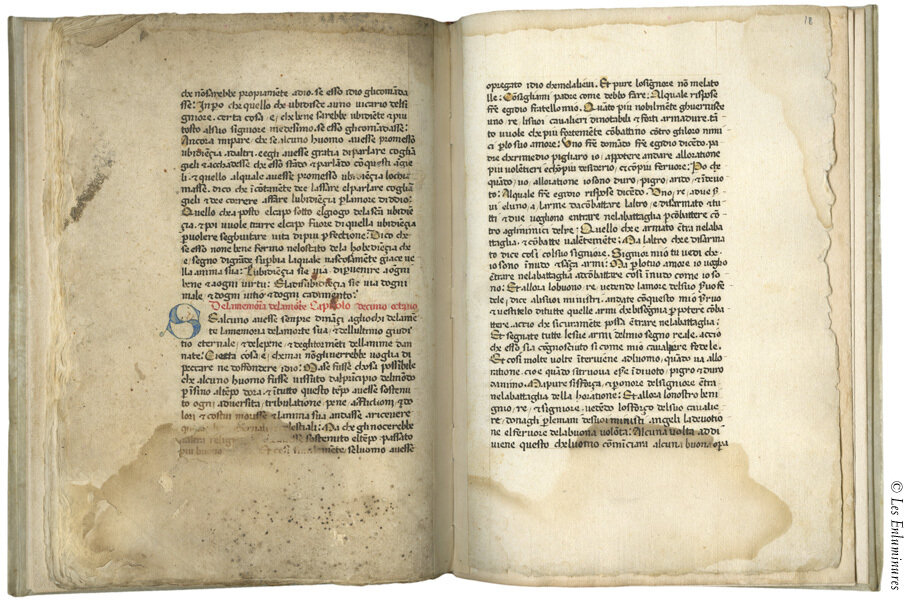 che nõ sarebbe propiamẽte adio. se esso idio gli comãda
sse: Inpo che quello che ubrdisce auno uicario delsi
gniore. certa cosa e, che bene sarebbe ubidiẽte et piu
tosto alsuo signiore medesimo. se esso gli comãdasse:
Ancora mi pare, che se alcuno huomo auesse promesso
ubidiẽça. adaltri. et egli auesse gratia di parlare cogliã
gieli et achadesse che esso stãdo et parlãdo cõ questi ãgie
li. et quello alquale auesse promessa ubidiẽça lochia
masse. dico che icõtanẽte dee lassare el parlare cogliã
gieli et dee correre affare lubidiẽça plamore didio:
Quello che a posto elcapo sotto elgiogo dela sc̃a ubidiẽ
ça. et poi uuole trarre elcapo fuore di quella ubidiẽça
puolere seghuitare uita dipiu pfectione: Dico che
se esso none bene fermo nelo stato dela hobediẽça che
e segno digrãde supbia laquale nascosamẽte giace ne
lla anima sua: Lubidiẽça sie uia dipuenire aogni
bene et aogni uirtu: Et la disubidiẽça sie uia dogni
male et dogni uitio et dogni cadimẽto:
Dela memoria dela morte Capitolo decimo octauo
Se alcuno auesse sempre dinãçi agliochi dela mẽ
te la memoria dela morte sua, et dellultimo giudi
tio eternale, et dele pene, et degli tormẽti dellanime dan
nate: Certa cosa e, che mai nõ gli uerrebbe uoglia di
peccare ne doffendere idio: Ma se fusse chosa possibile
che alcuno huomo fusse uissuto dal pricipio del mõdo
p ĩsino al tẽpo dora, et ĩ tutto questo tẽpo auesse sostenu
to ogni aduersita, tribulatione pene, afflictioni, et do
lori, et costui morisse et lanima sua andasse ariceuere
celestiali: Ma che gli nocerebbe
sostenuto el tẽpo passato
se luomo auesse
18
opregato idio che nela chaui. Et pure lo signore nõ mela to
lle: Consigliami padre come debbo fare: Al quale rispose
frẽ egidio fratello mio. Quãto piu nobilmẽte ghuernisce
uno re, li suoi caualieri dinotabili et forti armadure. tã
to uuole che piu fortemẽte cõbattino cõtro gli loro nimi
ci p lo suo amore: Uno frẽ domãdo frẽ egidio dicẽdo. pa
dre che rimedio pigliaro io, appotere andare alloratione
piu uolẽtieri et cõ piu desiderio, et cõ piu feruore: Po che
quãdo, uo alloratione io sono duro, pigro, arido, et ĩdeuo
to: Al quale frẽ egidio rispose dicẽdo. Uno, re, a due s̃
ui eluno, a larme da cõbattare laltro, e disarmato et tu
tti et due uogliono entrare nela battaglia p cõbattere cõ
tro agli nimici del re: Quello che e armato ẽtra nela ba
ttaglia, et cõbatte ualẽtemẽte: Ma laltro che e disarma
to dice cosi al suo signiore. Signior mio tu uedi che
io sono ĩnudo et sẽça armi: Ma p lo tuo amore io uoglio
ẽtrare nela battaglia et cõbattare cosi ĩnudo come io so
no: Et allora lo buono, re, uedendo lamore del suo s̃uo fe
dele, dice a li suoi ministri. andate cõ questo mio s̃uo
et uestitelo di tutte quelle armi che bisogna p potere cõba
ttere. accio che sicuramẽte possa ẽtrare nela battaglia:
Et segnate tutte le sue armi del mio segno reale, accio
che esso sia cognosciuto si come mio caualiere fedele.
Et cosi molte uolte ĩteruiene adluomo, quãdo ua allo
ratione, cio e quãdo si truoua ĩdeuoto, pigro, et duro
danimo. Ma pure si sforça, et p onore del signiore ẽtra
nela battaglia dela horatione: Et allora lo nostro beni
gnio, re, et signiore, uedẽdo lo sforço del suo caualie
re, donagli p le mani de suoi ministri angeli la deuotio
ne el feruore dela buona uolõta: Alcuna uolta addi
uiene questo che luomo comĩcia alcuna buona opa
© Les Enluminures